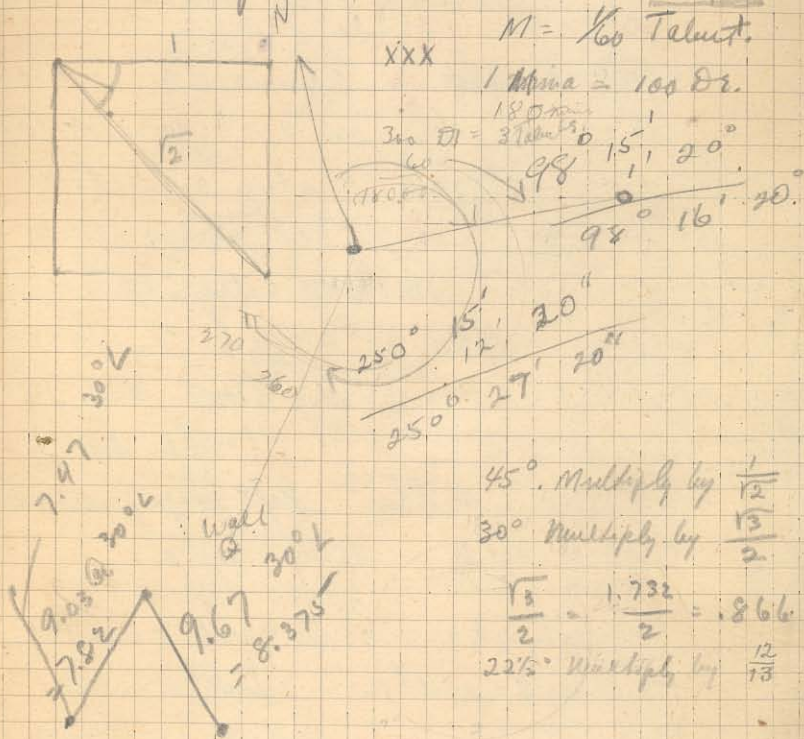 N
1
XXX
M = 1/60 Talent.
1 Mina = 100 Dr.
300 Dr = 3 Talents
60
√2
98° 15' 20"
1'
98° 16' 20"
250° 15' 20"
12'
250° 27' 20"
270
260
Wall
Q
7.47 30° V
9.03 @ 30° V
= 7.82
9.67 30° V
= 8.375
45°. Multiply by 1/√2
30° Multiply by √3/2
√3/2 = 1.732/2 = .866
22½° Multiply by 12/13